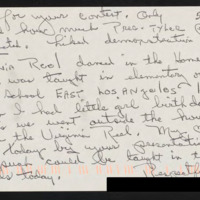 for your contest. Only
how much Pres. Tyler
. liked demonstration
Reel danced in the home
was taught in elementary
school EAST LOS ANGELES!
I had little girl birthd
we went outside the hou
the Virginia Reel. Mrs
today be your
could be taught in
today.
Respectfu